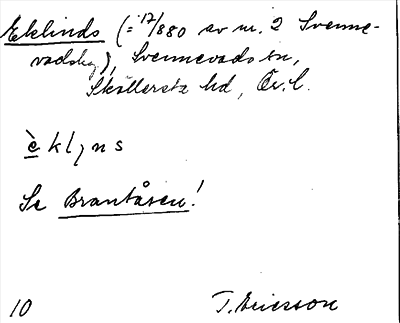 Eklinds (= 17/880 av nr. 2 Svenne-
vadsby), Svennevads sn,
Sköllersta hd, Ör. l.
èklyns
Se Brantåsen!
10 T. Ericsson